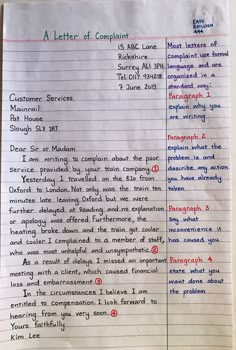 EASY
ENGLISH
444
A Letter of Complaint
15 ABC Lane
Rickshire
Surrey AL1 3PH
Tel. 0117 934218
7 June 2019
Customer Services
Mainrail
Pat House
Slough SLX 1RT
Dear Sir or Madam
I am writing to complain about the poor
service provided by your train company. ①
Yesterday I travelled on the 8.10 from
Oxford to London. Not only was the train ten
minutes late leaving Oxford but we were
further delayed at Reading and no explanation
or apology was offered. Furthermore, the
heating broke down and the train got cooler
and cooler. I complained to a member of staff,
who was most unhelpful and unsympathetic. ②
As a result of delays I missed an important
meeting with a client, which caused financial
loss and embarrassment. ③
In the circumstances I believe I am
entitled to compensation. I look forward to
hearing from you very soon. ④
Yours faithfully
Kim Lee
Most letters of
complaint use formal
language and are
organized in a
standard way:
Paragraph 1
explain why you
are writing
Paragraph 2
explain what the
problem is and
describe any action
you have already
taken
Paragraph 3
Say what
inconvenience it
has caused you
Paragraph 4
state what you
want done about
the problem